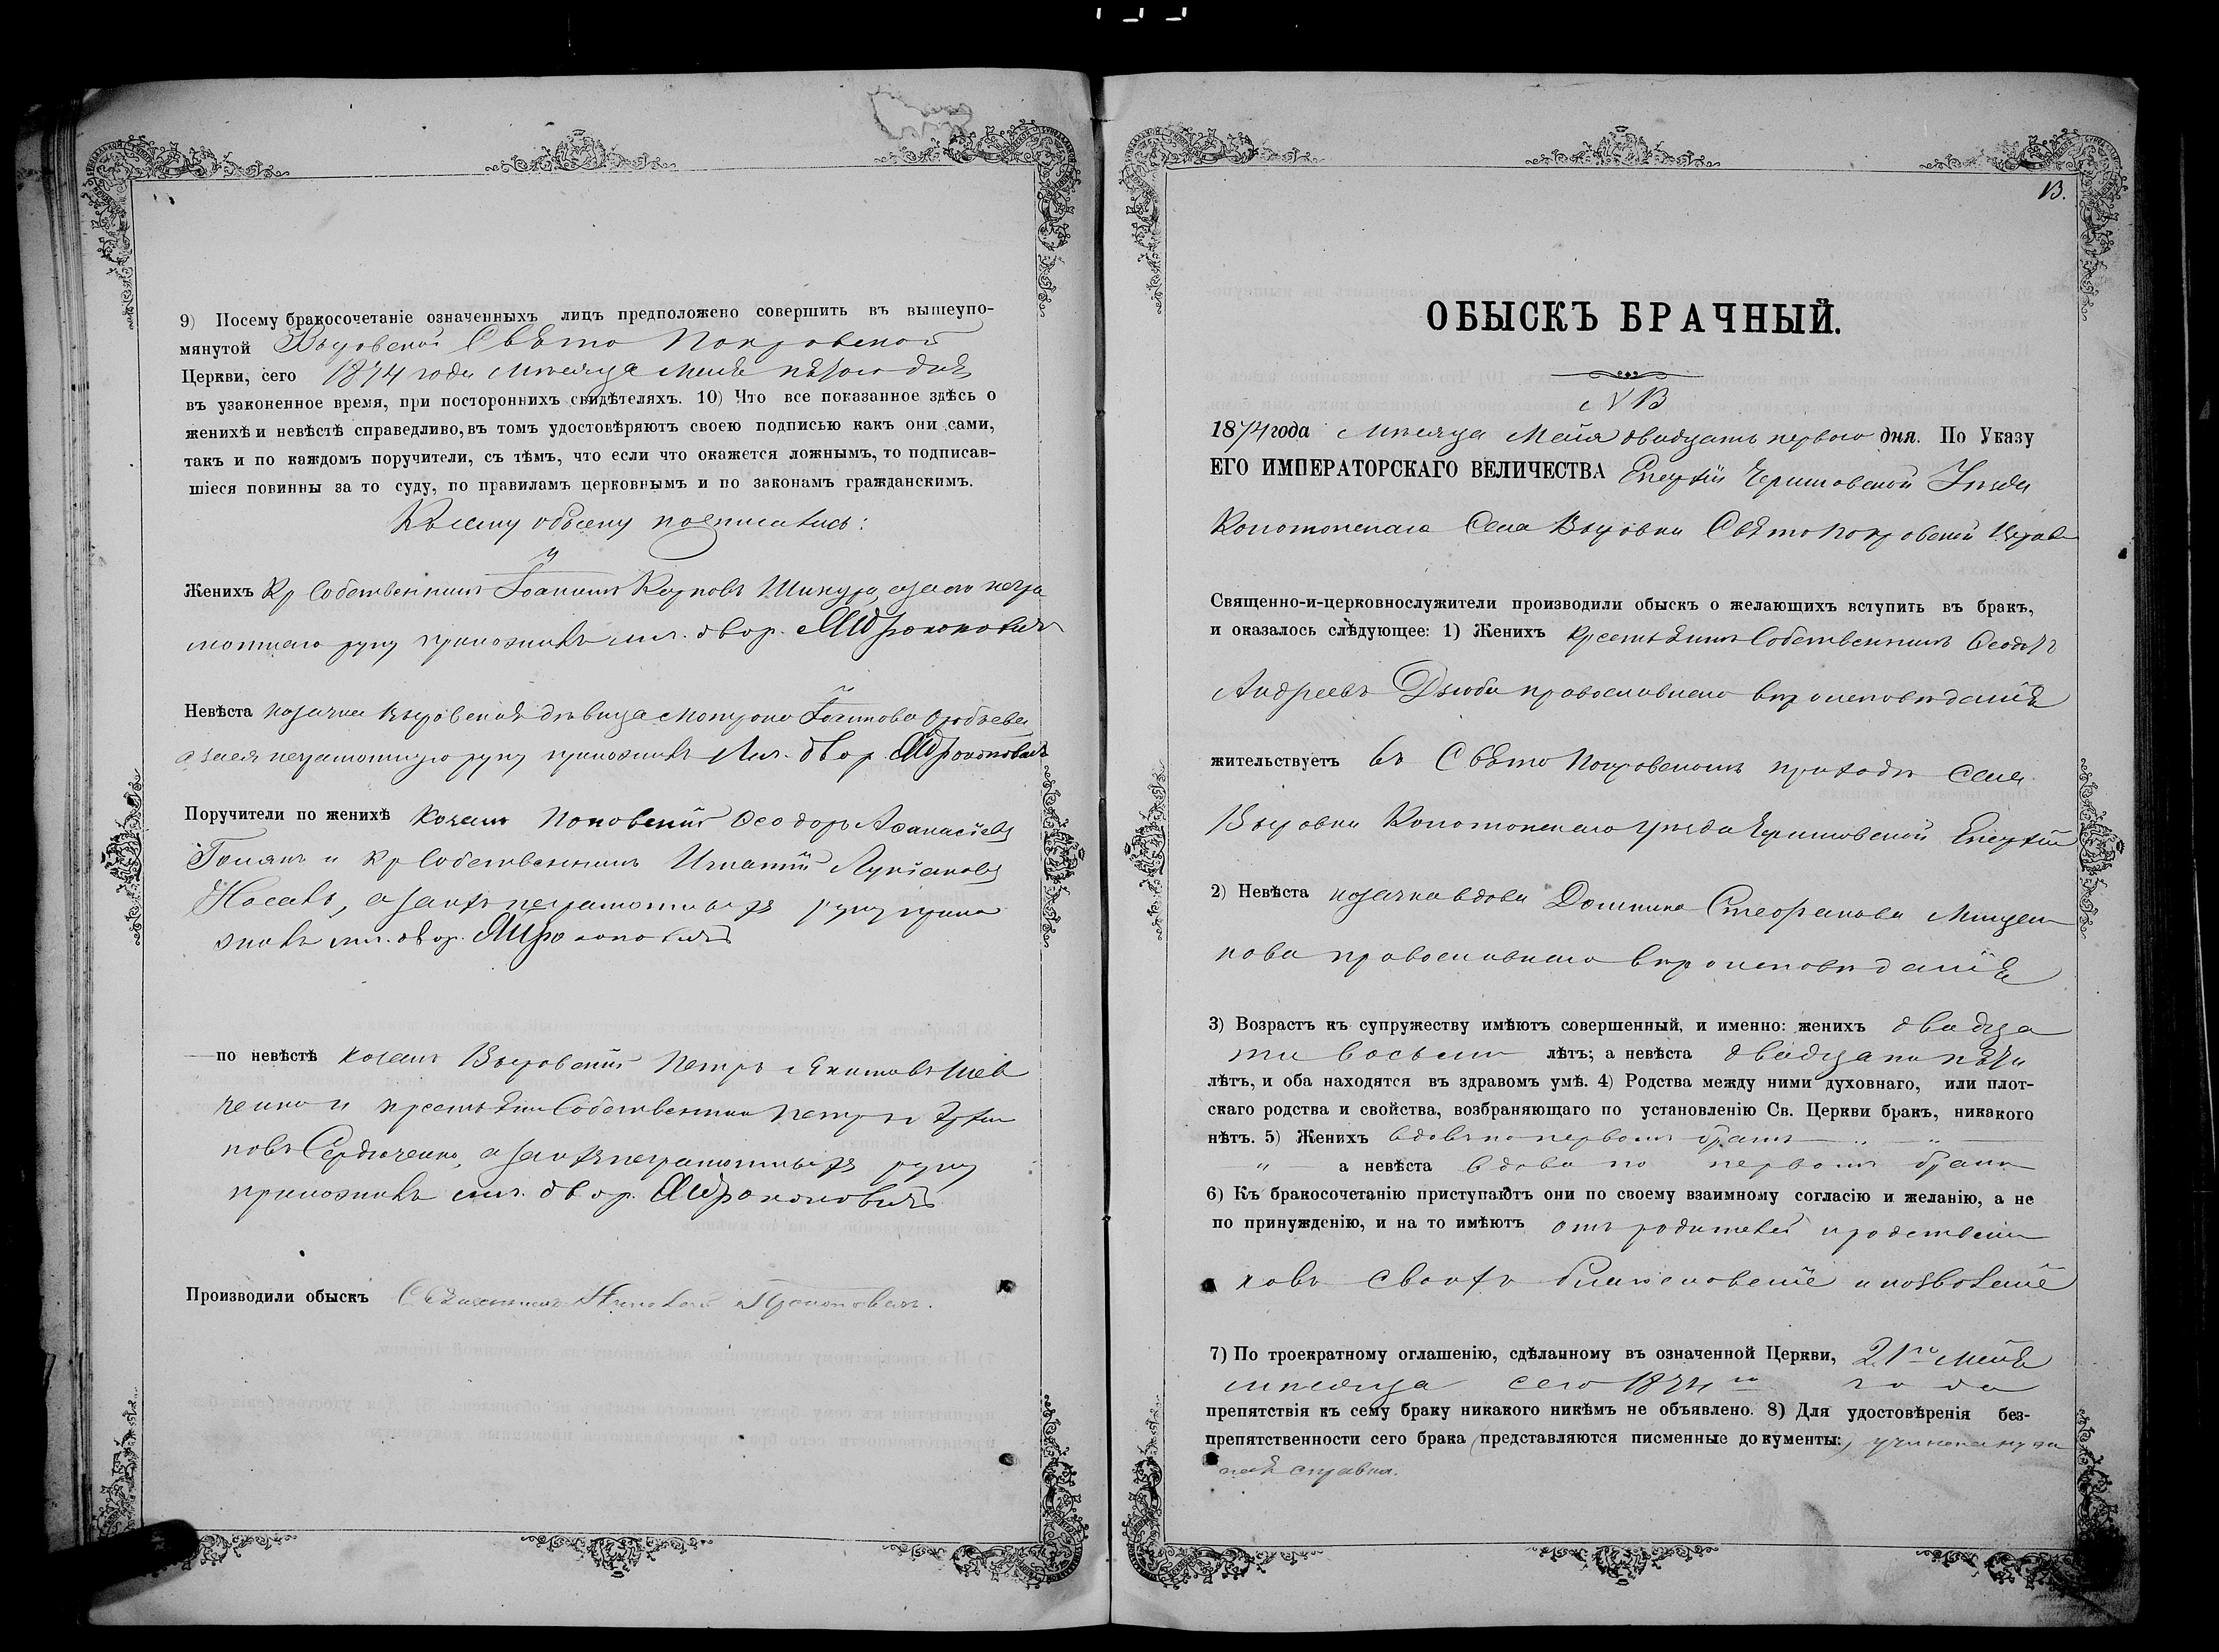 9) Посему бракосочетаніе означенныхъ лицъ предположено совершить въ вышеупо-
мянутой Выровской Свято Покровской
Церкви, сего 1874 года Мѣсяца Мая дня
въ узаконенное время, при постороннихъ свидѣтеляхъ. 10) Что все показанное здѣсь о
женихѣ и невѣстѣ справедливо, въ томъ удостовѣряютъ своею подписью какъ они сами,
такъ и по каждомъ поручители, съ тѣмъ, что если что окажется ложнымъ, то подписав-
шіеся повинны за то суду, по правиламъ церковнымъ и по законамъ гражданскимъ.
Къ сему обыску подписались:
Женихъ Кр Собственникъ Іоаннъ Карповъ Шинура, а за его негра
мотнаго руку приложилъ двор. Прокоповичъ
Невѣста козачка Выровская дѣвица Мотрона Іоаннова
а за ея неграмотную руку приложилъ двор. Прокоповичъ
Поручители по женихѣ Козакъ Поповскій Ѳеодоръ Аѳанасіевъ
и Кр Собственникъ Игнатій Лукіановъ
Носакъ, а за ихъ неграмотныхъ руку прило
жилъ двор. Прокоповичъ
по невѣстѣ козакъ Выровскій Петръ Екимовъ Шев
ченко и крестьянинъ Собственникъ Петръ
новъ Сердюченко, а за ихъ неграмотныхъ руку
приложилъ двор. Прокоповичъ
Производили обыскъ Священникъ Николай Прокоповичъ.
13.
ОБЫСКЪ БРАЧНЫЙ.
N 13
1874 года Мѣсяца Мая двадцать перваго дня. По Указу
ЕГО ИМПЕРАТОРСКАГО ВЕЛИЧЕСТВА Епархіи Черниговской Уѣзда
Конотопскаго Села Выровки Свято Покровской Церкви
Священно-и-церковнослужители производили обыскъ о желающихъ вступить въ бракъ,
и оказалось слѣдующее: 1) Женихъ Крестьянинъ Собственникъ Ѳеодоръ
Андреевъ Дзюба православнаго вѣроисповѣданія
жительствуетъ въ Свято Покровскомъ приходѣ Села
Выровки Конотопскаго уѣзда Черниговской Епархіи
2) Невѣста козачка вдова Домника Стефанова Мищен
кова православнаго вѣроисповѣданія
3) Возрастъ къ супружеству имѣютъ совершенный, и именно: женихъ двадца
ти восьми лѣтъ; а невѣста двадцати пяти
лѣтъ, и оба находятся въ здравомъ умѣ. 4) Родства между ними духовнаго, или плот-
скаго родства и свойства, возбраняющаго по установленію Св. Церкви бракъ, никакого
нѣтъ. 5) Женихъ вдовъ по первомъ бракѣ — „ — „ —
„ — а невѣста вдова по первомъ бракѣ
6) Къ бракосочетанію приступаютъ они по своему взаимному согласію и желанію, а не
по принужденію, и на то имѣютъ отъ родителей и родствени
ковъ своихъ благословеніе и позволеніе
7) По троекратному оглашенію, сдѣланному въ означенной Церкви, 21го Мая
мѣсяца сего 1874го года
препятствія къ сему браку никакого никѣмъ не объявлено. 8) Для удостовѣренія без-
препятственности сего брака представляются писменные документы:
справка.